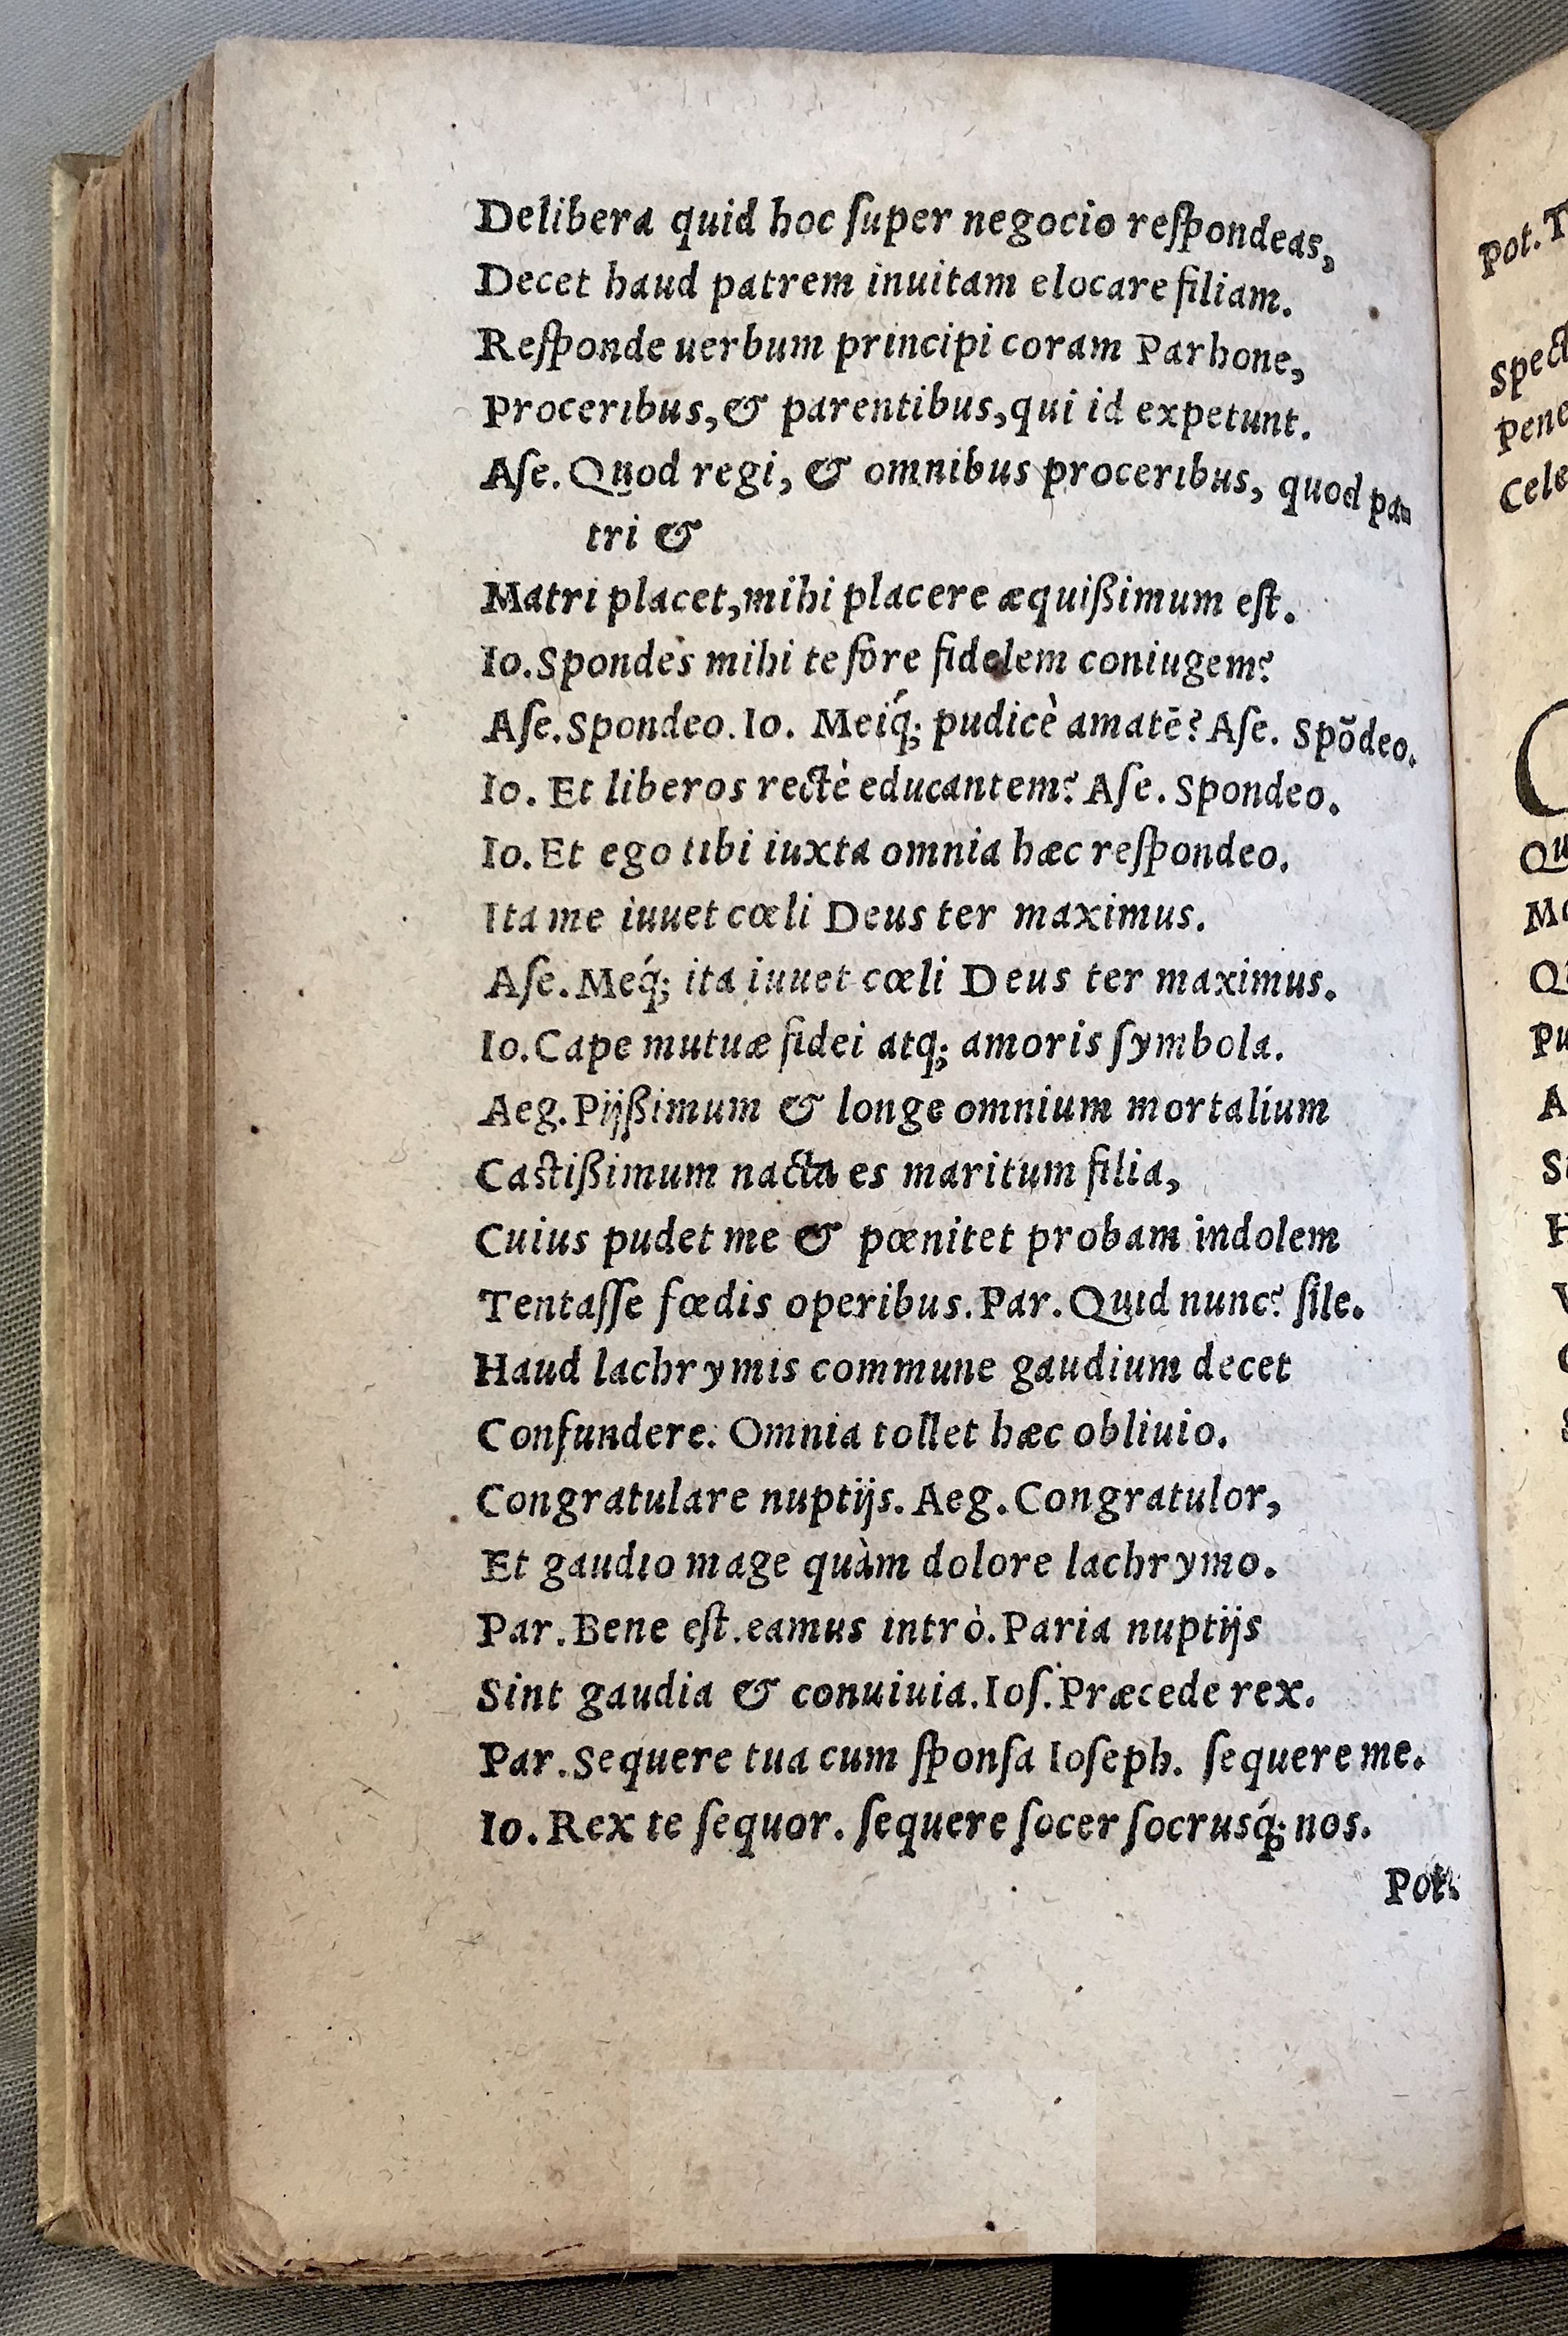 Delibera quid hoc ſuper negocio reſpondeas,
Decet haud patrem inuitam elocare filiam.
Reſponde uerbum principi coram Parhone,
Proceribus, & parentibus, qui id expetunt.
Aſe. Quod regi, & omnibus proceribus, quod pa-
tri &
Matri placet, mihi placere æquißimum eſt.
Io. Spondes mihi te fore fidelem coniugem?
Aſe. Spondeo. Io. Meiq́; pudicè amatē? Aſe. Spōdeo.
Io. Et liberos rectè educantem? Aſe. Spondeo.
Io. Et ego tibi iuxta omnia hæc reſpondeo.
Ita me iuuet cœli Deus ter maximus.
Aſe. Meq́; ita iuuet cœli Deus ter maximus.
Io. Cape mutuæ fidei atq; amoris ſymbola.
Aeg. Pijßimum & longe omnium mortalium
Caſtißimum nacta es maritum filia,
Cuius pudet me & pœnitet probam indolem
Tentaſſe fœdis operibus. Par. Quid nunc? ſile.
Haud lachrymis commune gaudium decet
Confundere. Omnia tollet hæc obliuio.
Congratulare nuptijs. Aeg. Congratulor,
Et gaudio mage quàm dolore lachrymo.
Par. Bene eſt. eamus intrò. Paria nuptijs
Sint gaudia & conuiuia. Ioſ. Præcede rex.
Par. Sequere tua cum ſponſa Ioſeph. ſequere me.
Io. Rex te ſequor. ſequere ſocer ſocrusq́; nos.
Pot.
Pot. T
Spect
Pene
Cele
C
Qu
Pu
A